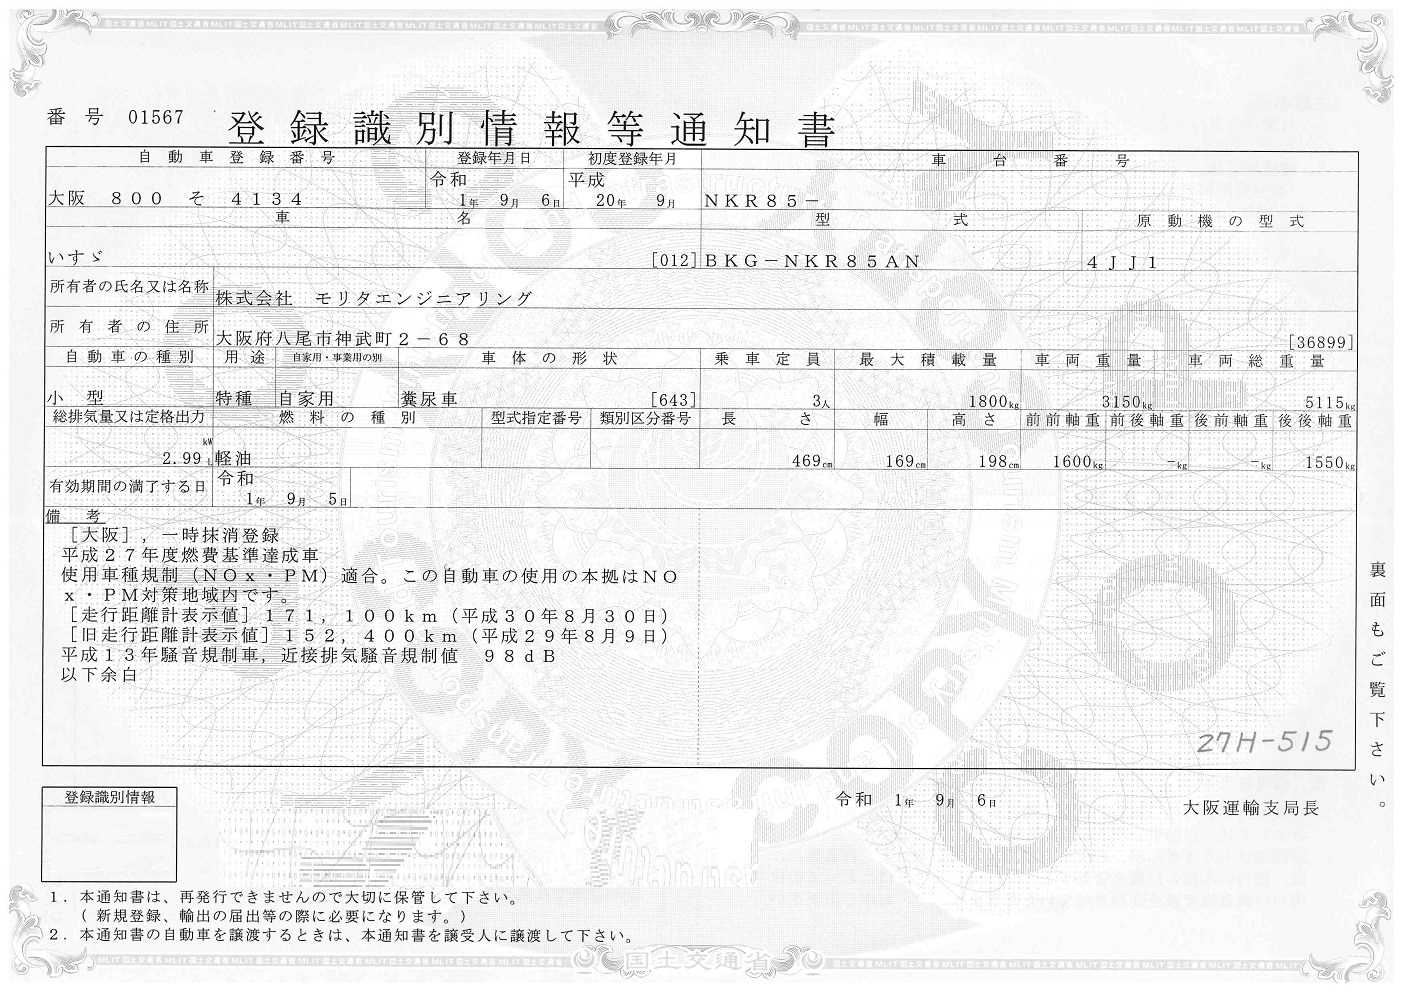 番号 01567 登録識別情報等通知書
自動車登録番号 登録年月日 初度登録年月 車台番号
大阪 800 そ 4134 令和 1年 9月 6日 平成 20年 9月 NKR85-
車名 型式 原動機の型式
いすゞ [012] BKG-NKR85AN 4JJ1
所有者の氏名又は名称 株式会社 モリタエンジニアリング
所有者の住所 大阪府八尾市神武町2-68 [36899]
自動車の種別 用途 自家用・事業用の別 車体の形状 乗車定員 最大積載量 車両重量 車両総重量
小型 特種 自家用 糞尿車 [643] 3人 1800kg 3150kg 5115kg
総排気量又は定格出力 燃料の種別 型式指定番号 類別区分番号 長さ 幅 高さ 前前軸重 前後軸重 後前軸重 後後軸重
kW
2.99 L 軽油 469cm 169cm 198cm 1600kg -kg -kg 1550kg
有効期間の満了する日 令和 1年 9月 5日
備考
[大阪],一時抹消登録
平成27年度燃費基準達成車
使用車種規制(NOx・PM)適合。この自動車の使用の本拠はNO
x・PM対策地域内です。
[走行距離計表示値]171,100km(平成30年8月30日)
[旧走行距離計表示値]152,400km(平成29年8月9日)
平成13年騒音規制車,近接排気騒音規制値 98dB
以下余白
27H-515
裏面もご覧下さい。
登録識別情報
令和 1年 9月 6日
大阪運輸支局長
1.本通知書は、再発行できませんので大切に保管して下さい。
(新規登録、輸出の届出等の際に必要になります。)
2.本通知書の自動車を譲渡するときは、本通知書を譲受人に譲渡して下さい。
国土交通省